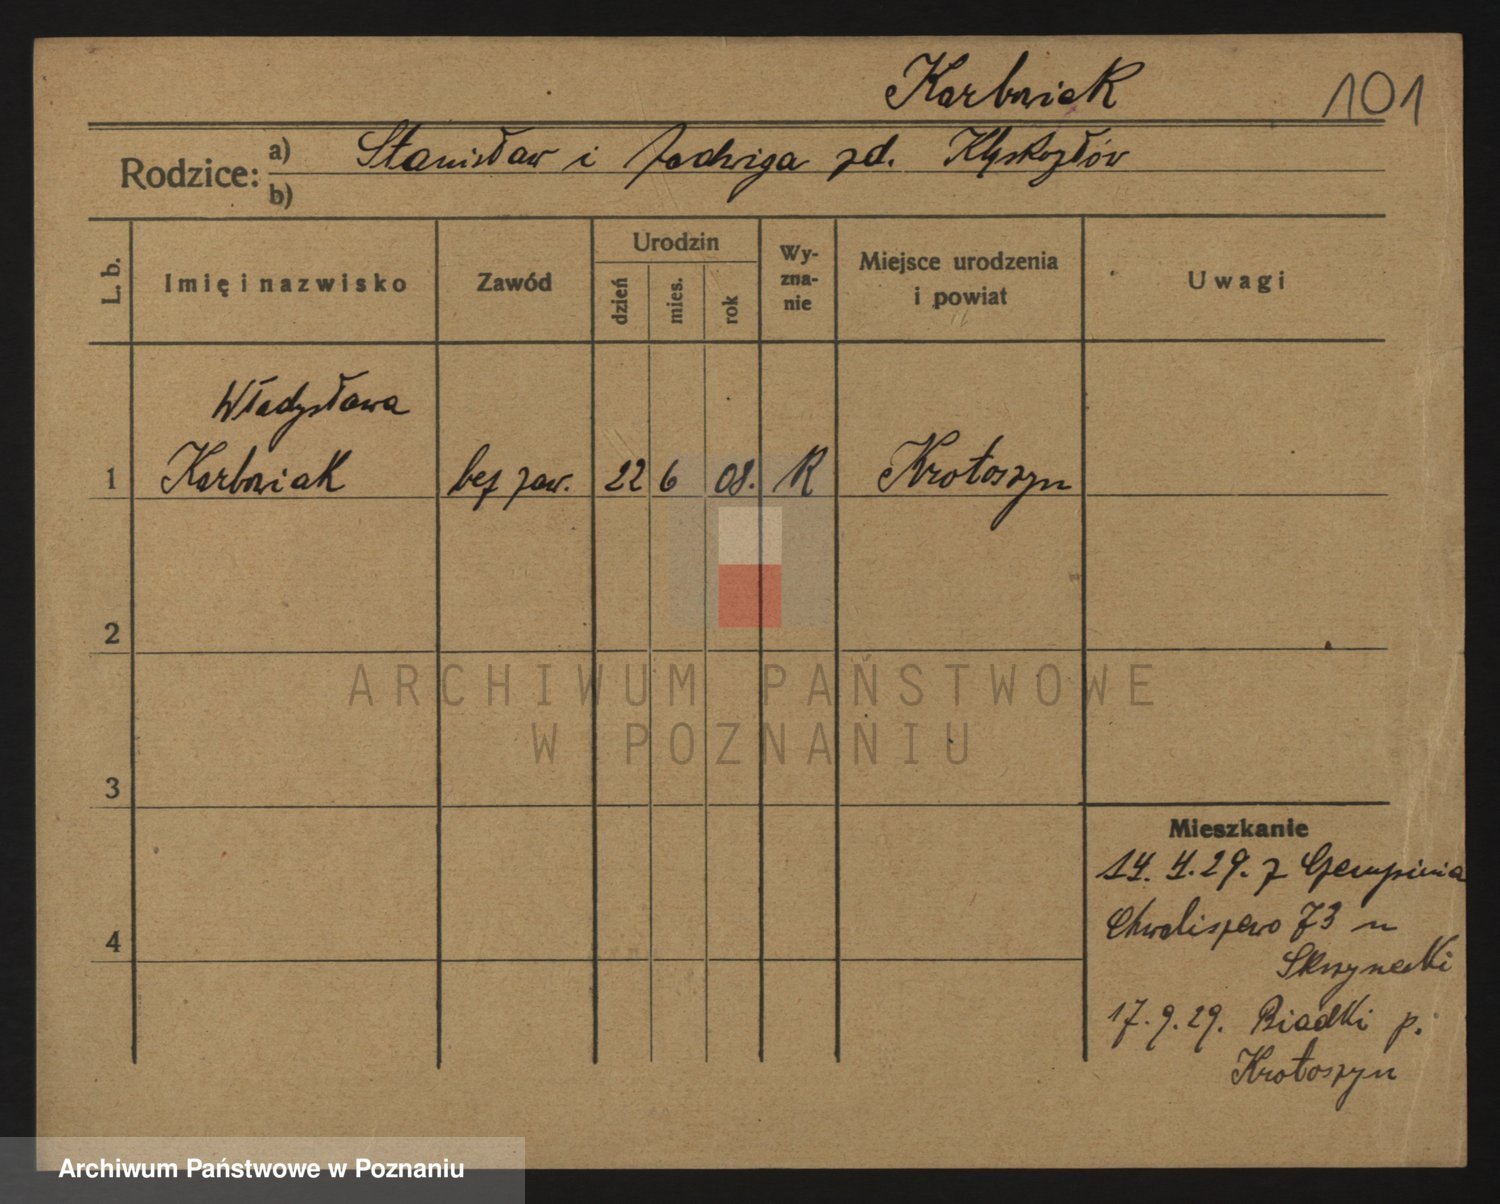 Karbowiak 101
Rodzice: a) Stanisław i Jadwiga zd.
b)
L. b. Imię i nazwisko Zawód Urodzin dzień mies. rok Wy-zna-nie Miejsce urodzenia i powiat Uwagi
Władysława
1 Karbowiak bez zaw. 22 6 08. K Krotoszyn
2
ARCHIWUM PAŃSTWOWE
W POZNANIU
3
Mieszkanie
14. 4. 29. z
4 Chwaliszewo 73 u
Skrzynecki
17. 9. 29. Biadki p.
Krotoszyn
Archiwum Państwowe w Poznaniu